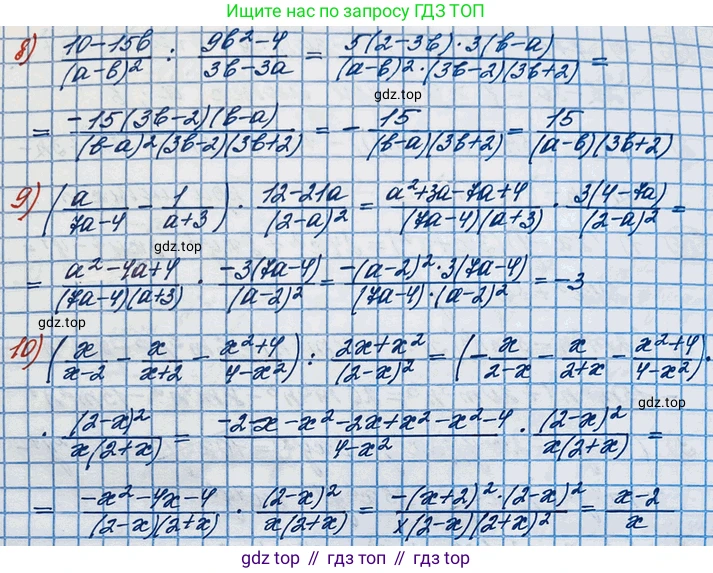 Ищите по запросу ГДЗ ТОП
8) (10-15b)/(a-b)² : (9b²-4)/(3b-3a) = (5(2-3b)·3(b-a))/((a-b)²·(3b-2)(3b+2)) =
gdz.top
= (-15(3b-2)(b-a))/((b-a)²(3b-2)(3b+2)) = - 15/((b-a)(3b+2)) = 15/((a-b)(3b+2))
9) (a/(7a-4) - 1/(a+3)) · (12-21a)/(2-a)² = (a²+3a-7a+4)/((7a-4)(a+3)) · (3(4-7a))/(2-a)² =
gdz.top
= (a²-4a+4)/((7a-4)(a+3)) · (-3(7a-4))/(a-2)² = (-(a-2)²·3(7a-4))/((7a-4)·(a-2)²) = -3
gdz.top
10) (x/(x-2) - x/(x+2) - (x²+4)/(4-x²)) : (2x+x²)/(2-x)² = (- x/(2-x) - x/(2+x) - (x²+4)/(4-x²)) ·
gdz.top
· (2-x)²/(x(2+x)) = (-2-x-x²-2x+x²-x²-4)/(4-x²) · (2-x)²/(x(2+x)) =
= (-x²-4x-4)/((2-x)(2+x)) · (2-x)²/(x(2+x)) = (-(x+2)²·(2-x)²)/(x(2-x)(2+x)²) = (x-2)/x
gdz.top // гдз топ // gdz.top // гдз топ // gdz.top